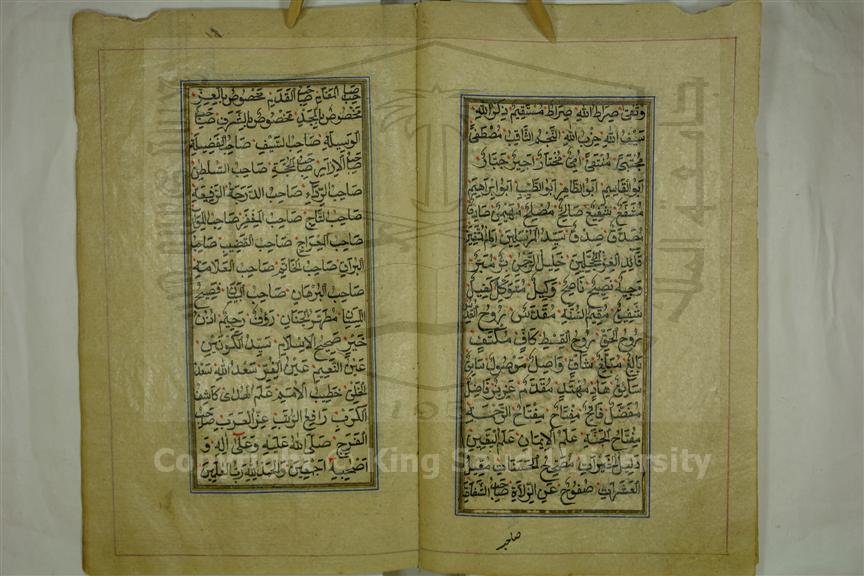 وثقى صراط الله صراط مستقيم ذكر الله
سيف الله حزب الله النجم الثاقب مصطفى
مجتبى منتقى امي مختار اجير جبار
ابو القاسم ابو الطاهر ابو الطيب ابو ابراهيم
مشفع شفيع صالح مصلح مهيمن صادق
مصدق صدق سيد المرسلين امام المتقين
قائد الغر المحجلين خليل الرحمن بر مبر
وجيه نصيح ناصح وكيل متوكل كفيل
شفيق مقيم السنة مقدس روح القدس
روح الحق روح القسط كاف مكتف
بالغ مبلغ شاف واصل موصول سابق
سائق هاد مهتد مقدم عزيز فاضل
مفضل فاتح مفتاح مفتاح الرحمة
مفتاح الجنة علم الايمان علم اليقين
دليل الخيرات مصحح الحسنات مقيل
العثرات صفوح عن الزلات صاحب الشفاعة
صاحب
صاحب المقام صاحب القدم مخصوص بالعز
مخصوص بالمجد مخصوص بالشرف صاحب
الوسيلة صاحب السيف صاحب الفضيلة
صاحب الازار صاحب الحجة صاحب السلطان
صاحب الرداء صاحب الدرجة الرفيعة
صاحب التاج صاحب المغفر صاحب اللواء
صاحب المعراج صاحب القضيب صاحب
البراق صاحب الخاتم صاحب العلامة
صاحب البرهان صاحب البيان فصيح
اللسان مطهر الجنان رؤف رحيم اذن
خير صحيح الاسلام سيد الكونين
عين النعيم عين الغر سعد الله سعد
الخلق خطيب الامم علم الهدى كاشف
الكرب رافع الرتب عز العرب صاحب
الفرج صلى الله عليه وعلى اله و
اصحبه اجمعين والحمد لله رب العلمين
Copyright © King Saud University